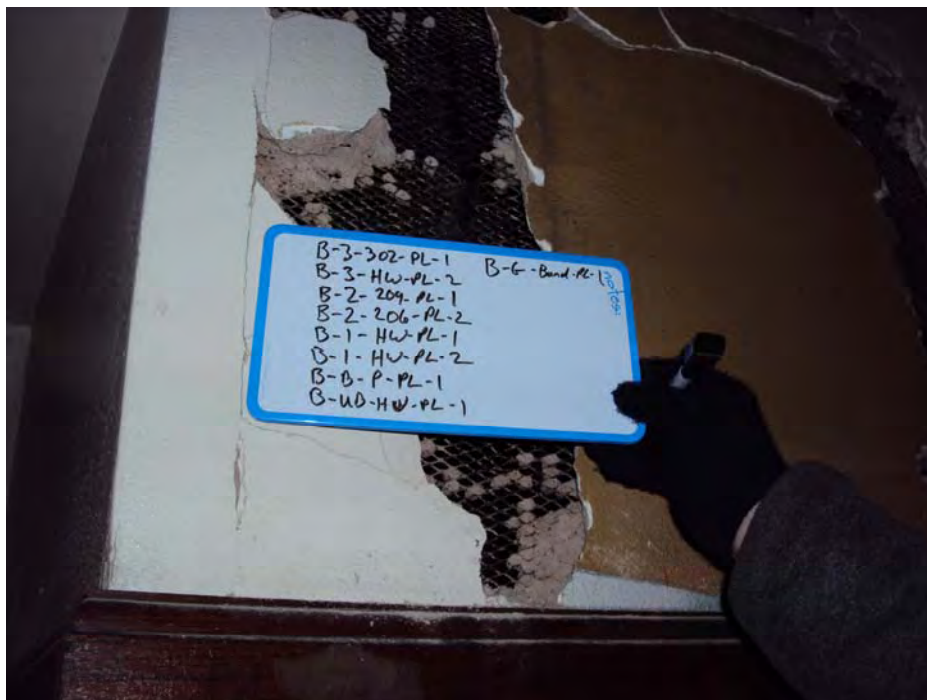 B-3-302-PL-1
B-3-HW-PL-2
B-2-204-PL-1
B-2-206-PL-2
B-1-HW-PL-1
B-1-HW-PL-2
B-B-P-PL-1
B-UB-HW-PL-1
B-G-Band-PL-1
notes: